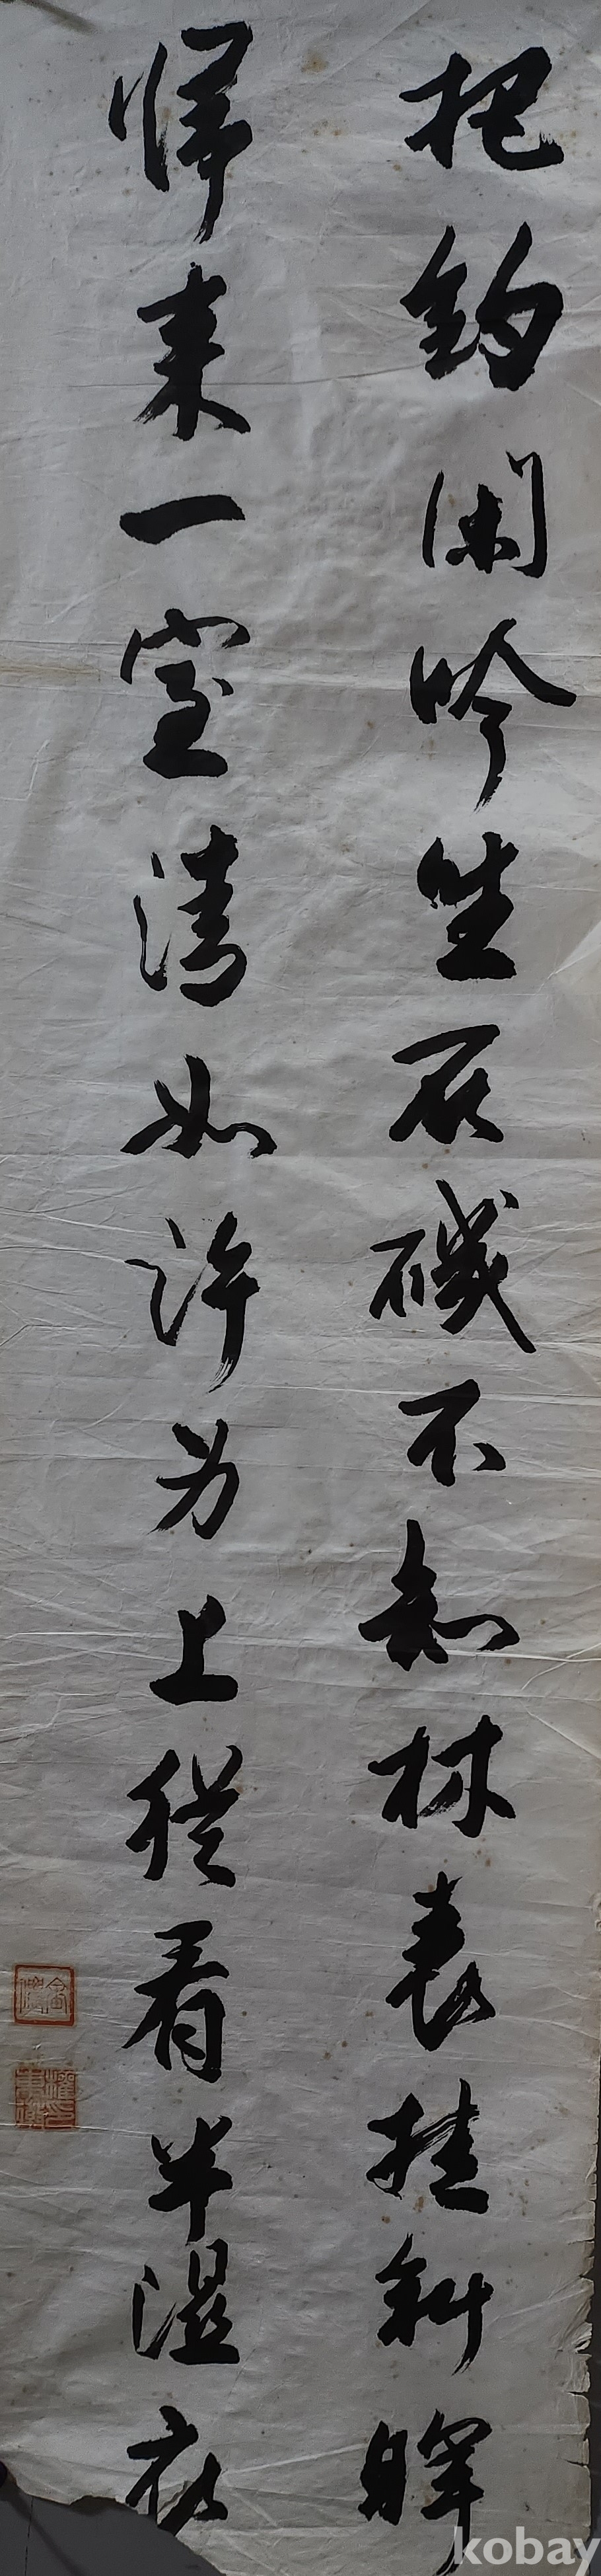 把釣閑吟坐石磯不知林表挂斜暉
歸来一室清如許为上從看半濕衣
kobay